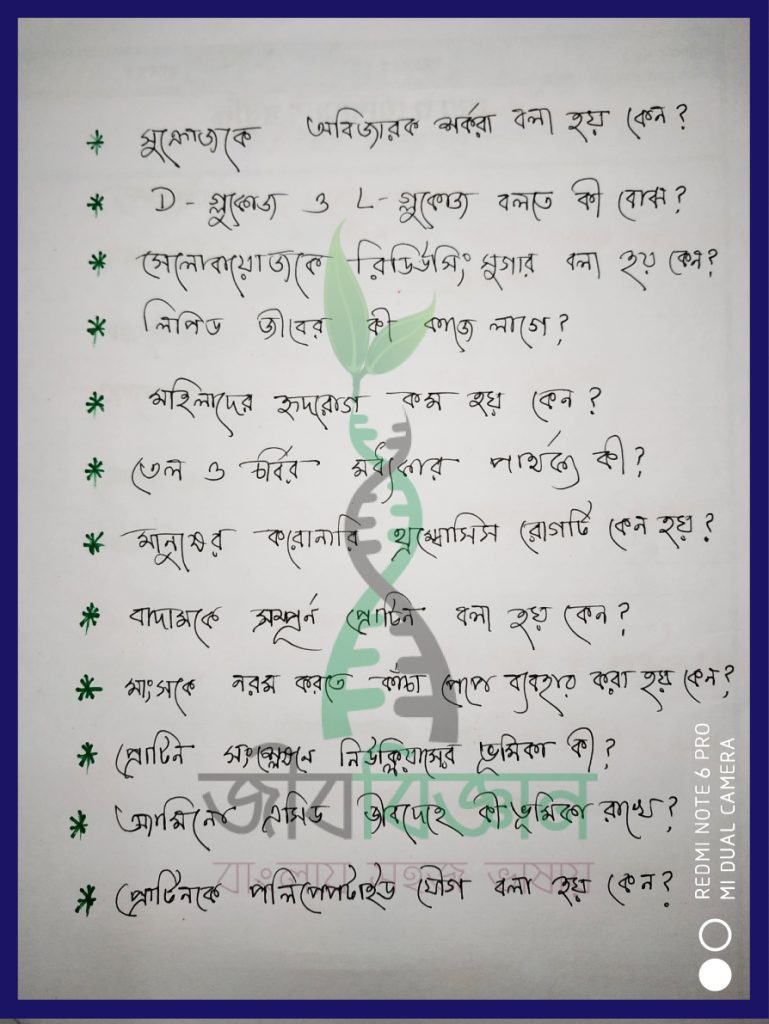 * সুক্রোজকে অবিজারক শর্করা বলা হয় কেন?
* D-গ্লুকোজ ও L-গ্লুকোজ বলতে কী বোঝ?
* সেলোবায়োজকে রিডিউসিং সুগার বলা হয় কেন?
* লিপিড জীবের কী কাজে লাগে?
* মহিলাদের হৃদরোগ কম হয় কেন?
* তেল ও চর্বির মধ্যকার পার্থক্য কী?
* মানুষের করোনারি থ্রম্বোসিস রোগটি কেন হয়?
* বাদামকে সম্পূর্ন প্রোটিন বলা হয় কেন?
* মাংসকে নরম করতে কাঁচা পেপে ব্যবহার করা হয় কেন?
* প্রোটিন সংশ্লেষনে নিউক্লিয়াসের ভূমিকা কী?
জীববিজ্ঞান
* অ্যামিনো এসিড জীবদেহে কী ভূমিকা রাখে?
বাংলায় সহজ ভাষায়
* প্রোটিনকে পলিপেপটাইড যৌগ বলা হয় কেন?
REDMI NOTE 6 PRO
MI DUAL CAMERA